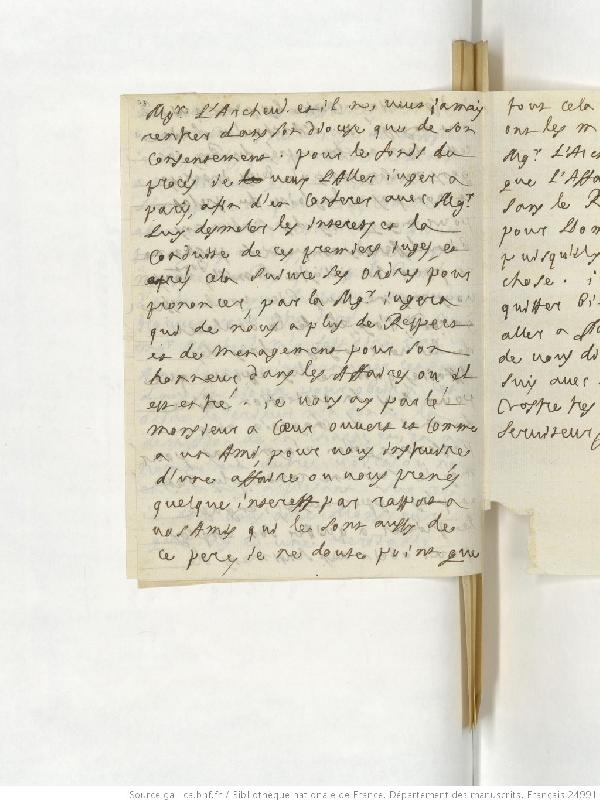 Mgr. L'Archeu. et il ne veut jamais
rentrer dans son diocese que de son
consentement. pour le fonds du
procés je veus L'Aller juger a
paris, afin d'en conferer avec Mgr.
Luy demeler les interests et la
conduite de ces premiers juges, et
aprés cela suivre ses ordres pour
prononcer, par la Mgr. jugera
qui de nous a plus de Respect
et de menagement pour son
honneur dans les Affaires ou il
est entré. je vous ay parlé
monsieur a Cœur ouvert et comme
a un Ami pour vous instruire
d'une affaire ou vous prenés
quelque interest par rapport a
vos Amis qui le sont aussy de
ce pere, je ne doute point que
tout cela
ont les m
Mgr. L'Arch
que L'Affai
sans le R
pour
puisqu'ils
chose. j
quitter
aller a
de vous di
suis avec
Vostre tres
serviteur
Source gallica.bnf.fr / Bibliothèque nationale de France. Département des manuscrits. Français 24991